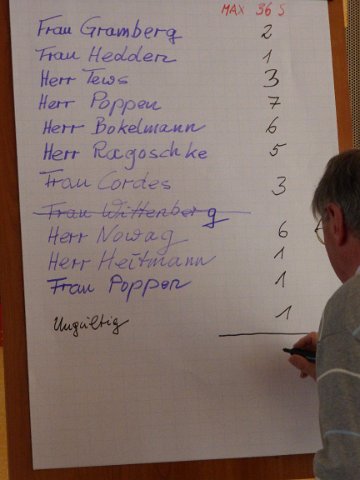 MAX 36 S
Frau Gramberg 2
Frau Hedden 1
Herr Tews 3
Herr Poppen 7
Herr Bokelmann 6
Herr Ragoschke 5
Frau Cordes 3
Frau Wittenberg
Herr Nowag 6
Herr Heitmann 1
Frau Poppen 1
Ungültig 1